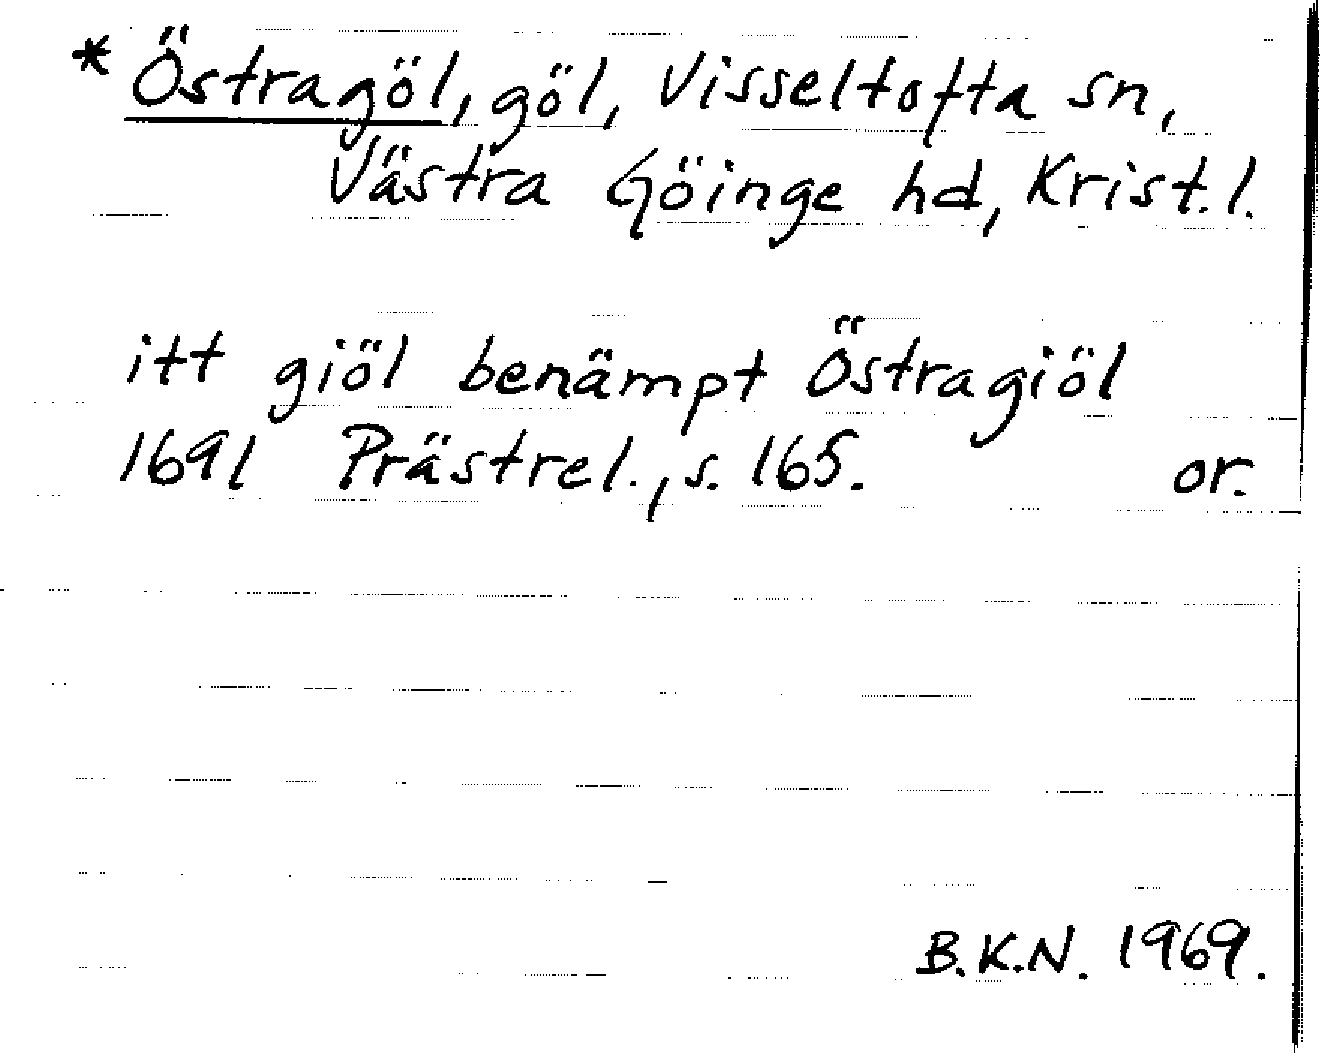 * Östragöl, göl, Visseltofta sn,
Västra Göinge hd, Krist. l.
itt giöl benämpt Östragiöl
1691 Prästrel., s. 165. or.
B.K.N. 1969.